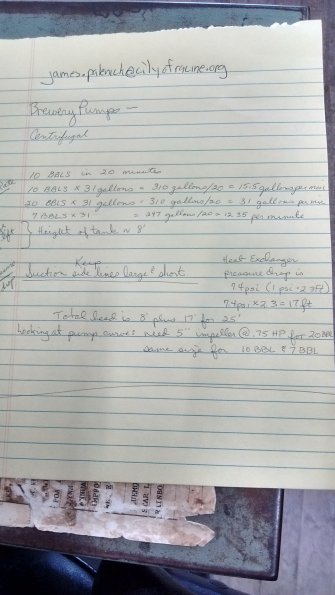 Brewery Pumps —
Centrifugal
10 BBLS in 20 minutes
10 BBLS x 31 gallons = 310 gallons/20 = 15.5 gallons per min
20 BBLS x 31 gallons = 310 gallons/20 = 31 gallons per min
7 BBLS x 31 " = 247 gallons/20 = 12.35 per minute
} Height of tank ~ 8'
Keep
Suction side lines large & short
Heat Exchanger
pressure drop is
7.4psi (1 psi = 2.3ft)
7.4psi x 2.3 = 17 ft
Total head is 8' plus 17' for 25'
Looking at pump curve: need 5" impeller @ .75 HP for 20 BBL
same size for 10 BBL & 7 BBL